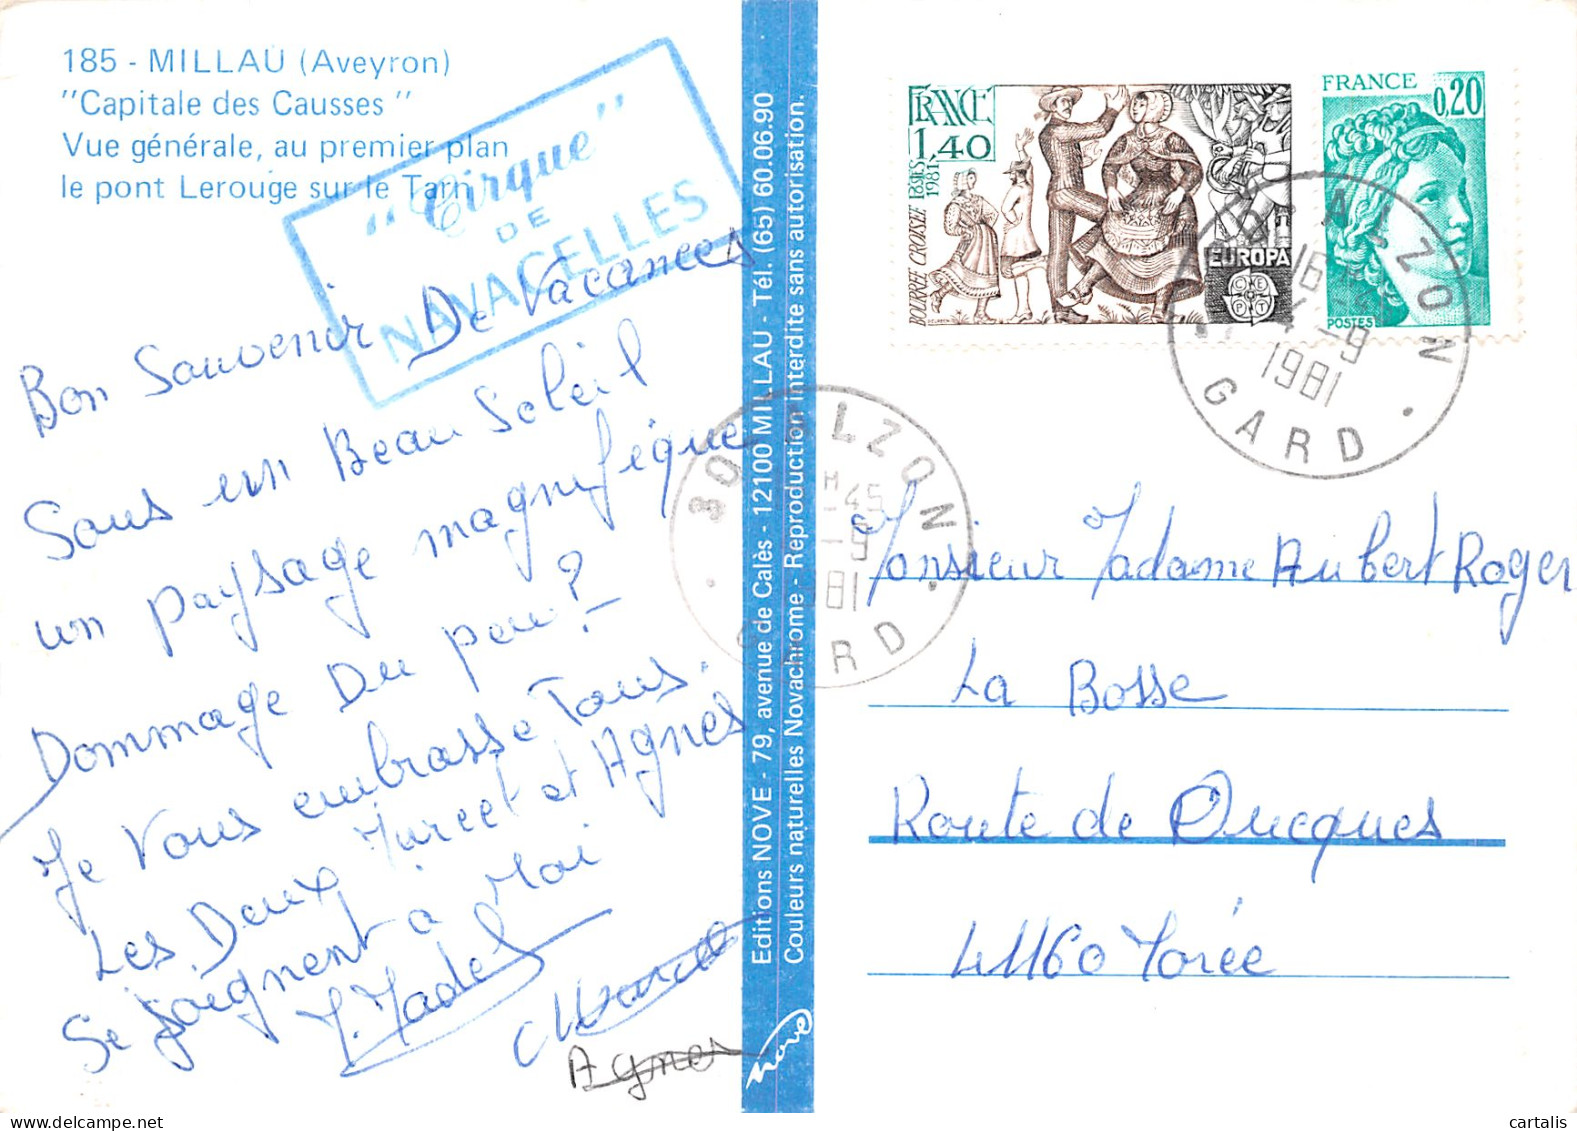 185 - MILLAU (Aveyron)
"Capitale des Causses"
Vue générale, au premier plan
le pont Lerouge sur le Tarn
"Cirque"
DE
NAVACELLES
Bon Souvenir De Vacances
Sous un Beau Soleil
un paysage magnifique
Dommage Du peu?
Je Vous embrasse Tous.
Les Deux Marcel et Agnès
Se Joignent a Moi
Marcel
Agnes
Editions NOVE - 79, avenue de Calès - 12100 MILLAU - Tél. (65) 60.06.90
Couleurs naturelles Novachrome - Reproduction interdite sans autorisation.
nove
FRANCE
1,40
BOURRÉE CROISÉE
1981
EUROPA
CEPT
FRANCE
0,20
POSTES
30 ALZON
16 H
4-9
1981
GARD
30 ALZON
H
45
-9
81
GARD
Monsieur Madame Aubert Roger
La Bosse
Route de Oucques
41160 Morée
cartalis